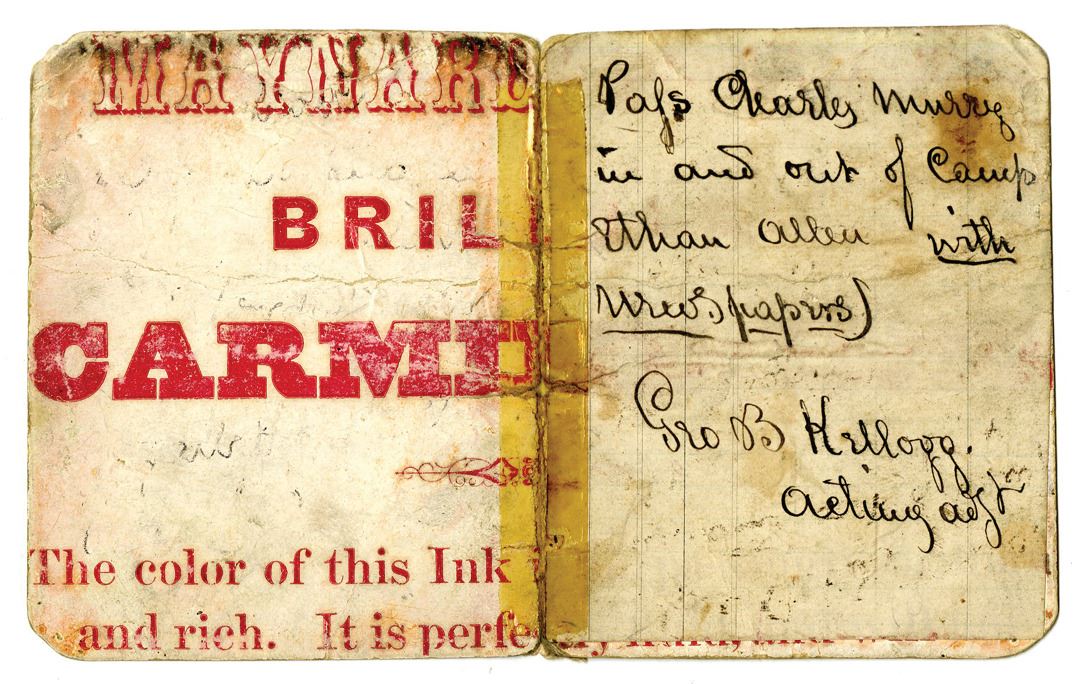 MAYNARD
BRIL
CARMI
The color of this Ink
and rich. It is perfe
Pass Charles Murry
in and out of Camp
Ethan Allen with
Newspapers)
Geo B Kellogg.
Acting adjt